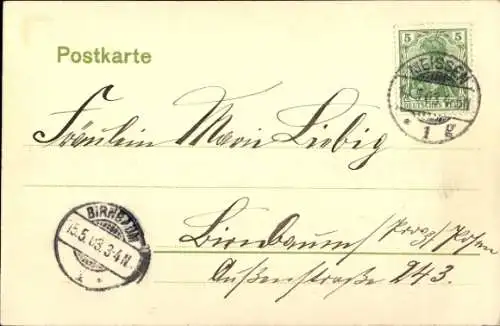 Postkarte
5 5
MEISSEN
DEUTSCHES REICH
* 1 g
Fräulein Marie Liebig
BIRNBAUM
15.5.03. 3-4 N.
Birnbaum Posen
Außenstraße 243.